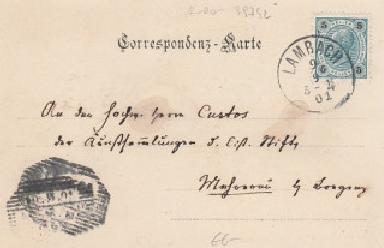 Correspondenz-Karte
5 5
5 5
LAMBACH
9
01
An den hochw. Herrn Custos
der Kunstsammlungen d. Cist. Stifts
Mehrerau b/ Bregenz
66-